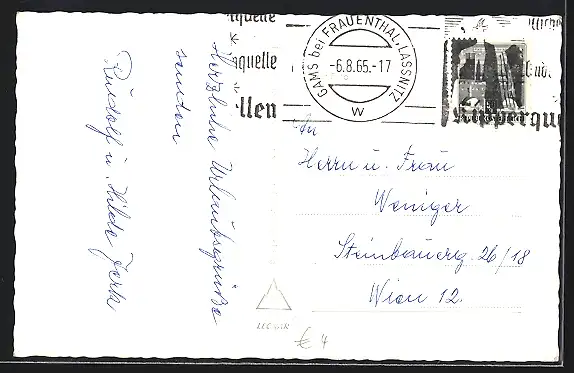 Herzliche Urlaubsgrüße
senden
Rudolf u. Hilde
quelle
quelle
GAMS bei FRAUENTHAL, LASSNITZ
-6.8.65.-17
w
An
Herrn u. Frau
Weniger
Steinbauerg. 26/18
Wien 12.
€ 4